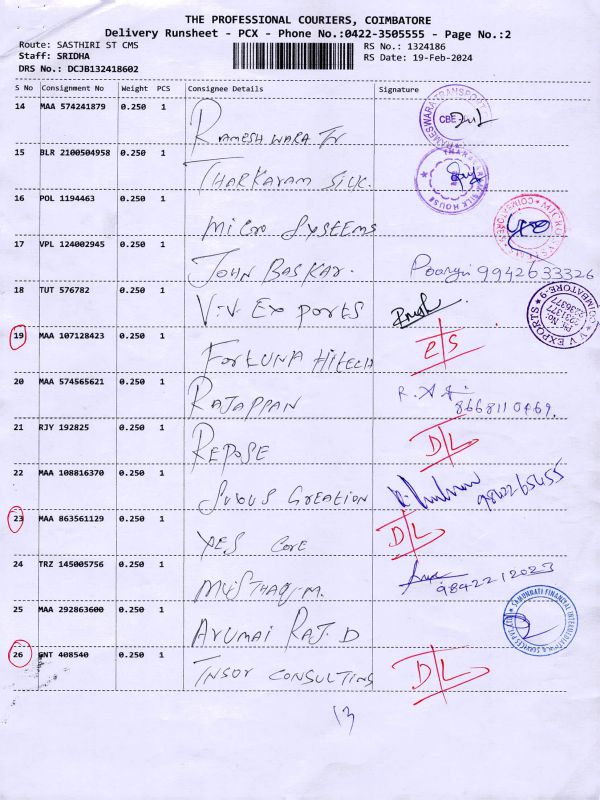 THE PROFESSIONAL COURIERS, COIMBATORE
Delivery Runsheet - PCX - Phone No.:0422-3505555 - Page No.:2
Route: SASTHIRI ST CMS RS No.: 1324186
Staff: SRIDHA RS Date: 19-Feb-2024
DRS No.: DCJB132418602
S No Consignment No Weight PCS Consignee Details Signature
14 MAA 574241879 0.250 1
RAMESHWARA Tr
RAMESWARA TRANSPORT CBE
15 BLR 2100504958 0.250 1
THARKARAM SILK.
SILK HOUSE
16 POL 1194463 0.250 1
MICRO SYSTEMS
17 VPL 124002945 0.250 1
JOHN BASKAR. 9942633326
18 TUT 576782 0.250 1
V.V. EXPORTS
V V EXPORTS COIMBATORE-9 Ph No
19 MAA 107128423 0.250 1
FORTUNA HITECH e/s
20 MAA 574565621 0.250 1
RAJAPPAN 8668110469.
21 RJY 192825 0.250 1
REPOSE D/L
22 MAA 108816370 0.250 1
CREATION 9842265455
23 MAA 863561129 0.250 1
YES CORE D/L
24 TRZ 145005756 0.250 1
MUSTHAQ.M. 9842212023
25 MAA 292863600 0.250 1
ARUMAI RAJ.D
SAMUNNATI FINANCIAL INTERMEDIATION & SERVICES PVT. LTD
26 GNT 408540 0.250 1
CONSULTING D/L
13